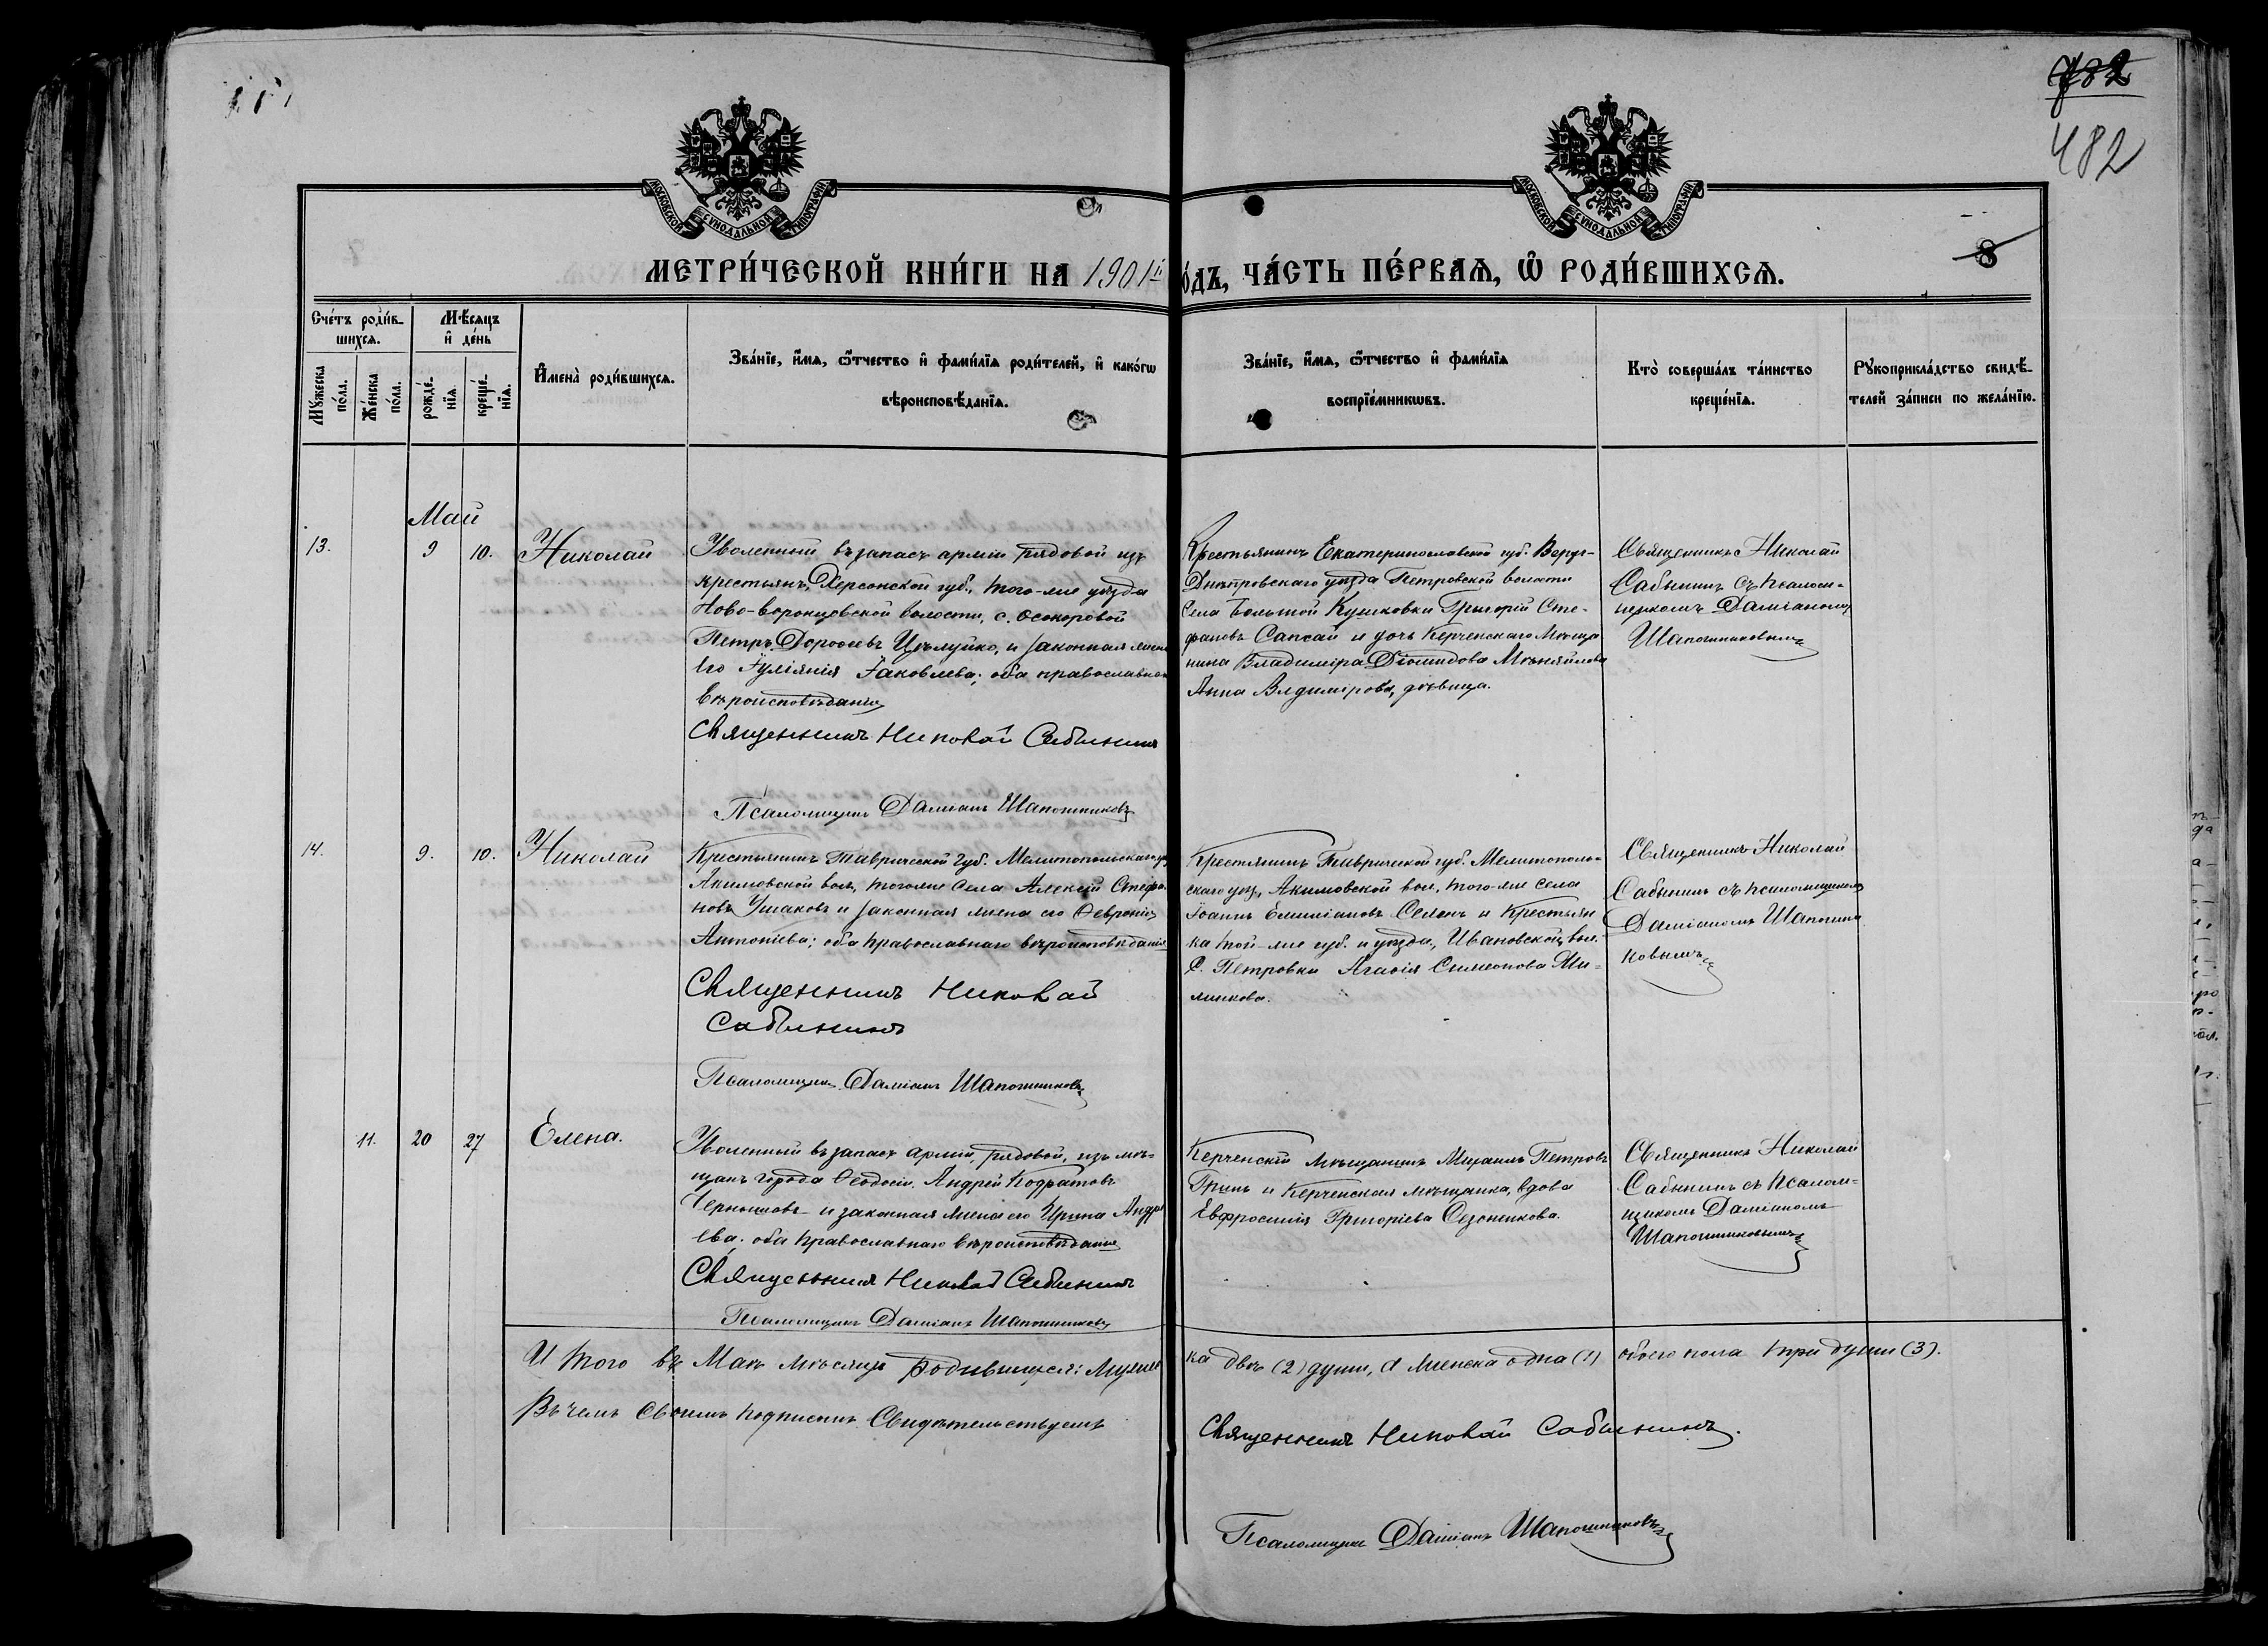 482
482
МОСКОВСКОЙ СѴНОДАЛЬНОЙ ТИПОГРАФІИ
МОСКОВСКОЙ СѴНОДАЛЬНОЙ ТИПОГРАФІИ
8
МЕТРИ́ЧЕСКОЙ КНИ́ГИ НА 1901й
О́ДЪ, ЧА́СТЬ ПЕ́РВАѦ, Ѡ҆ РОДИ́ВШИХСѦ.
Сче́тъ роди́в-
шихсѧ.
Мѣ́сѧцъ
и҆ де́нь
Мꙋ́жеска
по́ла.
Же́нска
по́ла.
рожде́-
нїѧ.
креще́-
нїѧ.
И҆мена̀ роди́вшихсѧ.
Зва́нїе, и҆́мѧ, ѻ҆́тчество и҆ фами́лїѧ роди́телей, и҆ како́гѡ
вѣроисповѣ́данїѧ.
Зва́нїе, и҆́мѧ, ѻ҆́тчество и҆ фами́лїѧ
воспрїе́мникѡвъ.
Кто̀ соверша́лъ та́инство
креще́нїѧ.
Рꙋкоприкла́дство свидѣ́-
телей за́писи по жела́нїю.
Май
13. 9 10. Николай
Уволенный въ запасъ арміи рядовой изъ
крестьянъ, Херсонской губ., того-же уѣзда
Ново-воронцовской волости, с. Осокоровой
Петръ Дороѳеевъ Цѣлуйко, и законная жена
его Іуліанія Іаковлева; оба православнаго
вѣроисповѣданія
Священникъ Николай Сабининъ
Псаломщикъ Даміанъ Шапошниковъ
Крестьянинъ Екатеринославской губ. Верхне-
Днѣпровскаго уѣзда Петровской волости
Села Большой Григорій Сте-
фановъ Сапсай и дочь Керченскаго Мѣща
нина Владиміра Діомидова
Анна Владимірова, дѣвица.
Священникъ Николай
Сабининъ съ псалом-
щикомъ Даміаномъ
Шапошниковымъ
14. 9. 10. Николай
Крестьянинъ Таврической Губ. Мелитопольскаго у.
Акимовской вол, тогоже села Алексій Стефа
новъ Ушаковъ и законная жена его Ѳевронія
Антоніева; оба православнаго вѣроисповѣданія
Священникъ Николай
Сабининъ
Псаломщикъ Даміанъ Шапошниковъ
Крестьянинъ Таврической губ. Мелитополь-
скаго уѣз., Акимовской вол, того-же села
Іоаннъ Емиліановъ и Крестьян
ка той-же губ. и уѣзда, Ивановской вол.
С. Петровки Агаѳія Симеонова
Священникъ Николай
Сабининъ съ псаломщикомъ
Даміаномъ Шапошни
ковымъ
11. 20 27 Елена.
Уволенный въ запасъ арміи, рядовой, изъ мѣ-
щанъ города Ѳеодосіи Андрей Кодратовъ
Чернышовъ и законная жена его Ирина Андре
ева. оба православнаго вѣроисповѣданія
Священникъ Николай Сабининъ
Псаломщикъ Даміанъ Шапошниковъ
Керченскій мѣщанинъ Михаилъ Петровъ
Гринь и Керченская мѣщанка, вдова
Евфросинія Григоріева
Священникъ Николай
Сабининъ съ псалом-
щикомъ Даміаномъ
Шапошниковымъ
И того въ Маѣ мѣсяцѣ родившихся: мужес
ка двѣ (2) души, а женска одна (1) обоего пола три души (3).
Въ чемъ своимъ подписомъ свидѣтельствуемъ
Священникъ Николай Сабининъ.
Псаломщикъ Даміанъ Шапошниковъ